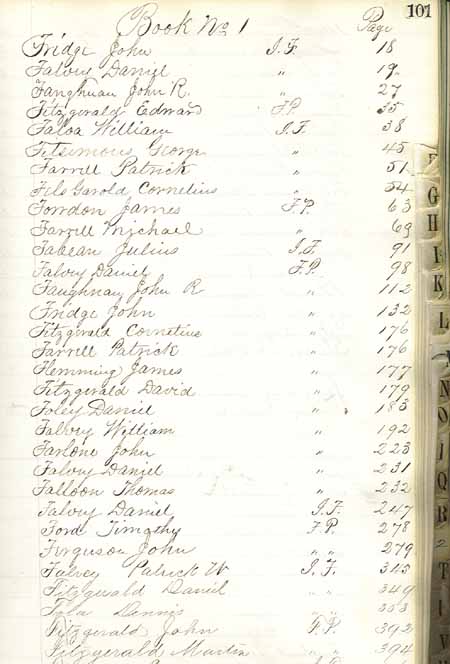 101
Book No 1 Page
Fridge John I.F. 18
Falvey Daniel " 19
Fanghnan John R. " 27
Fitzgerald Edward F.P. 35
Faloa William I.F. 38
Fitsimons George " 45
Farrill Patrick " 51
Fils Garold Cornelius " 54
Fowdon James F.P. 63
Farrill Michael " 69
Fabean Julius I.F. 91
Falvey Daniel F.P. 98
Faughnan John R " 112
Fridge John " 132
Fitzgerald Cornelius " 176
Farrell Patrick " 176
Flemming James " 177
Fitzgerald David " 179
Foley Daniel " 183
Falvey William " 192
Farlone John " 223
Falvey Daniel " 231
Falloon Thomas " 232
Falvey Daniel I.F. 247
Ford Timothy F.P. 278
Ferguson John " " 279
Falvey Patrick W I.F. 345
Fitzgerald Daniel " " 349
Dennis " " 353
Fitzgerald John F.P. 392
Fitzgerald Martin " " 394
F
G
H
I
K
L
N
O
Q
R
T
V